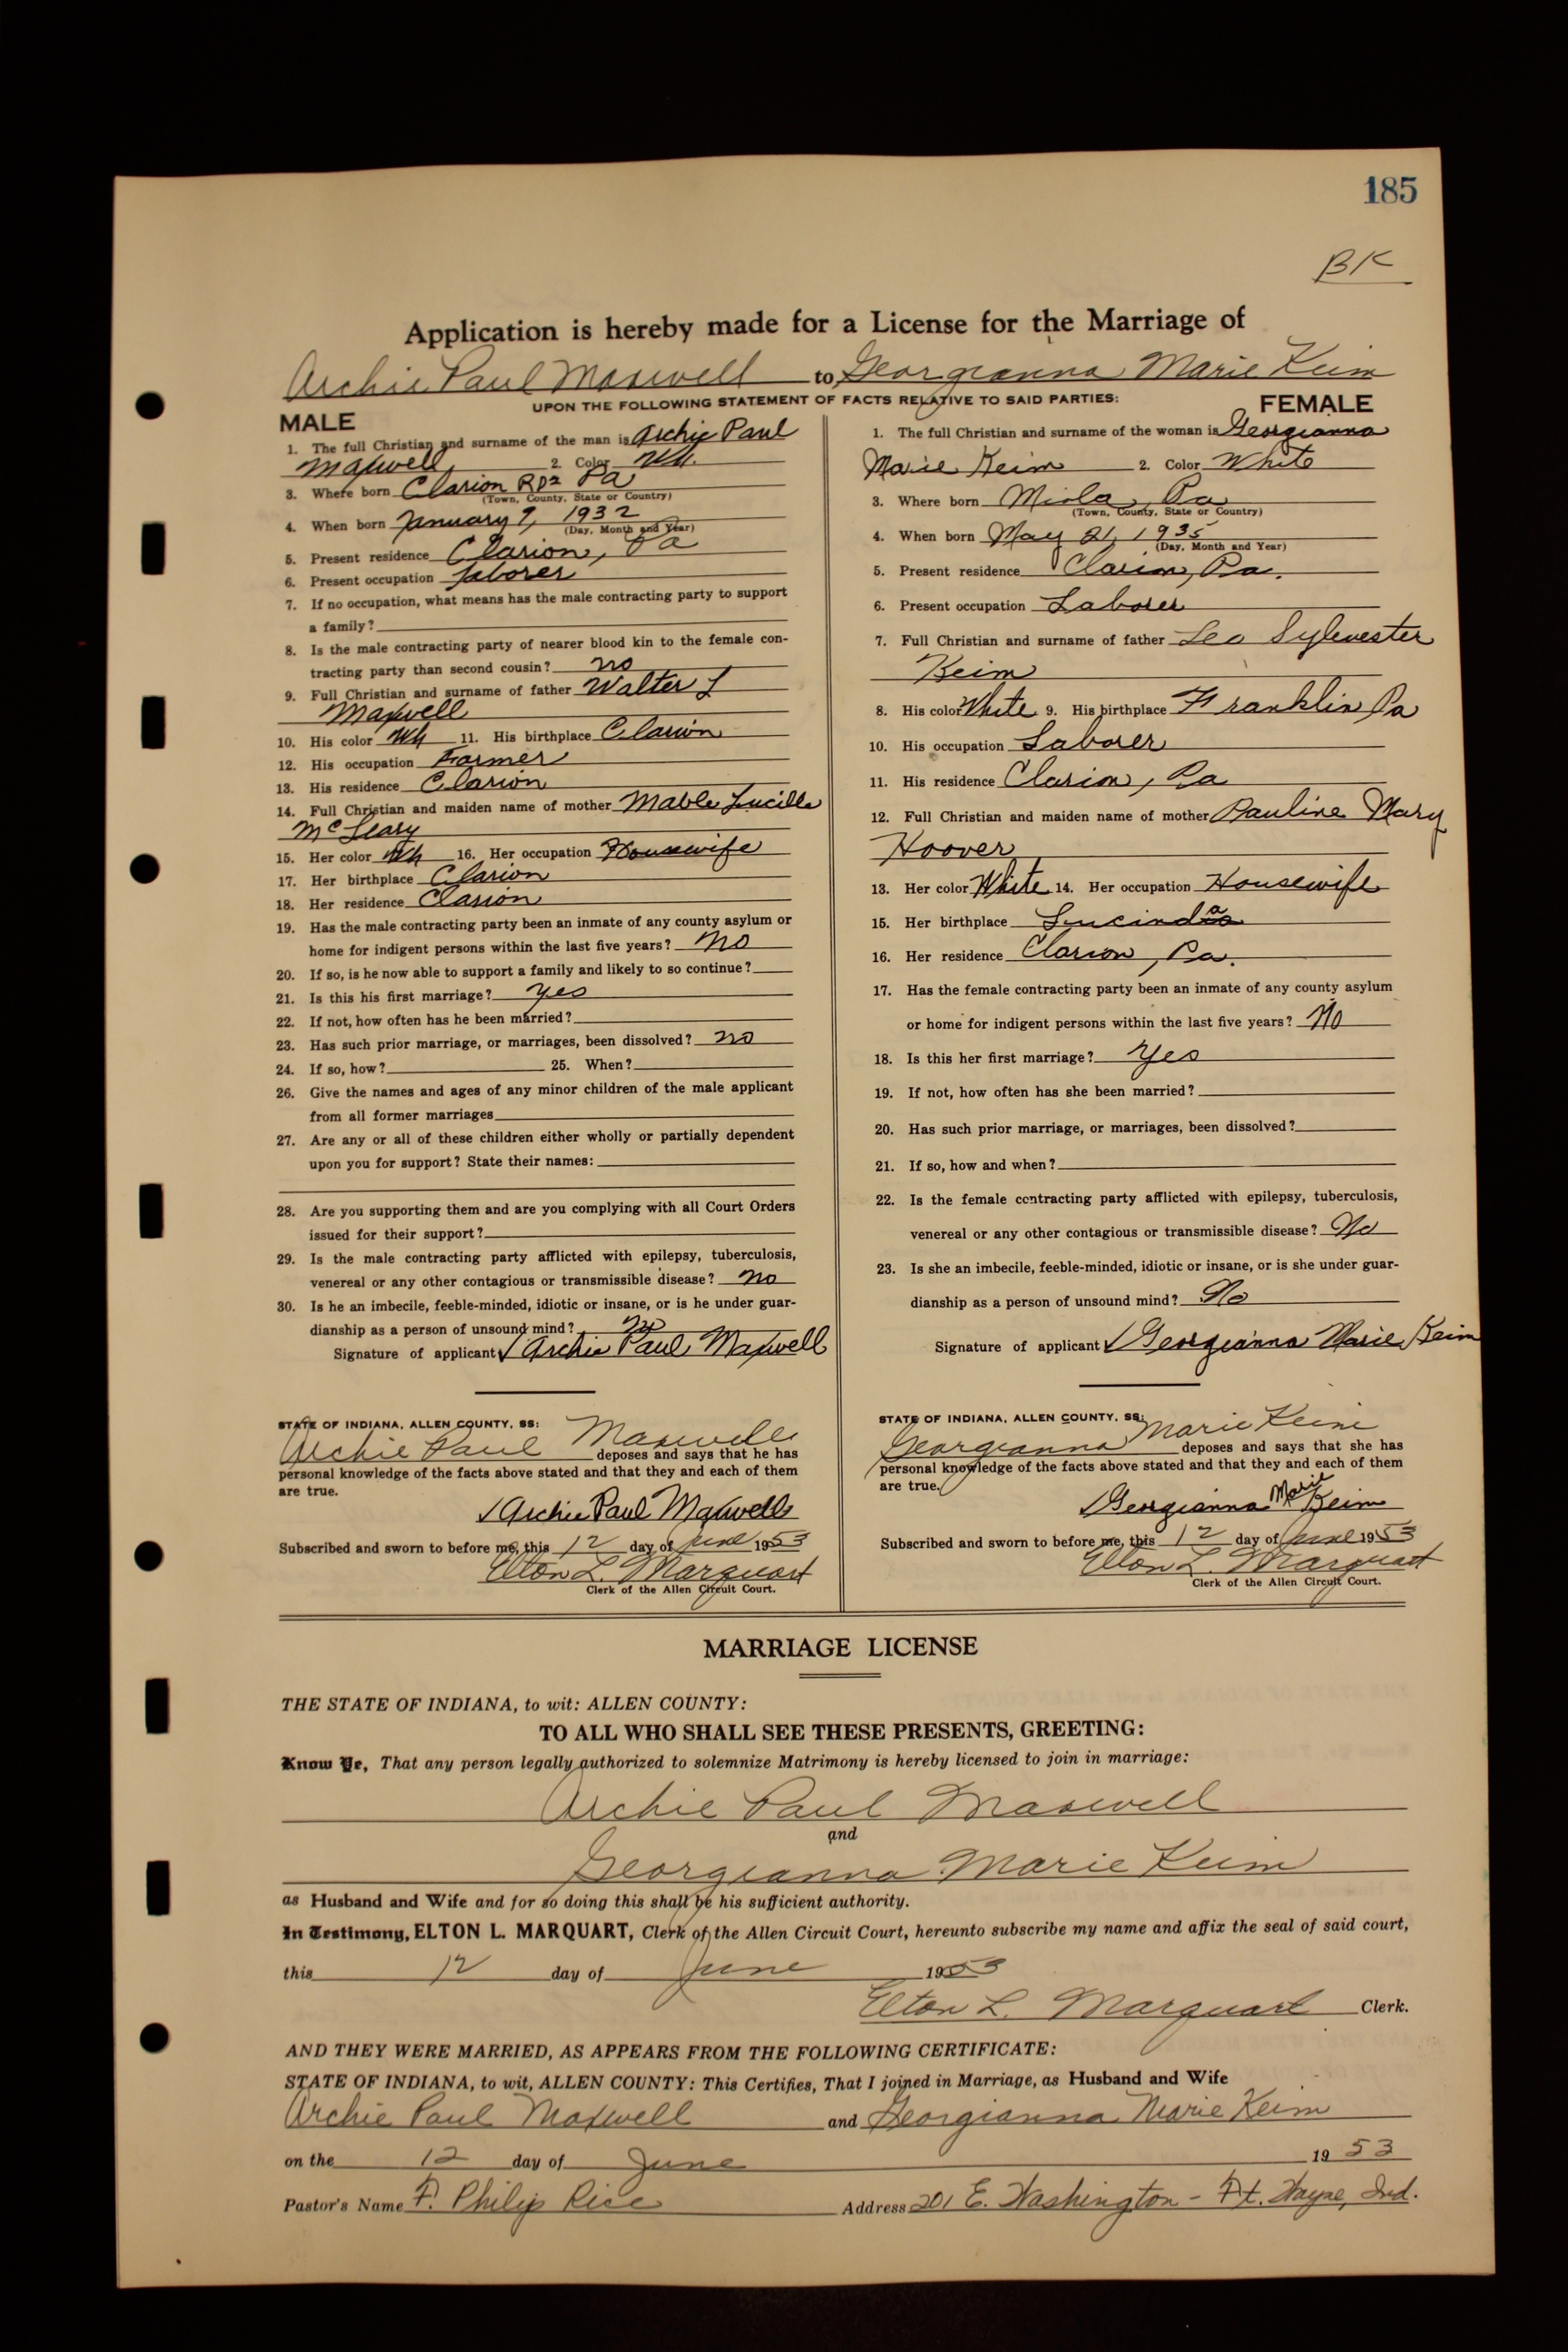 185
BK
Application is hereby made for a License for the Marriage of
Archie Paul Maxwell to Georgianna Marie Keim
UPON THE FOLLOWING STATEMENT OF FACTS RELATIVE TO SAID PARTIES:
MALE
1. The full Christian and surname of the man is Archie Paul
Maxwell 2. Color Wh.
3. Where born Clarion RD2 Pa
(Town, County, State or Country)
4. When born January 7, 1932
(Day, Month and Year)
5. Present residence Clarion, Pa
6. Present occupation Laborer
7. If no occupation, what means has the male contracting party to support
a family?
8. Is the male contracting party of nearer blood kin to the female con-
tracting party than second cousin? no
9. Full Christian and surname of father Walter L
Maxwell
10. His color Wh 11. His birthplace Clarion
12. His occupation Farmer
13. His residence Clarion
14. Full Christian and maiden name of mother Mable Lucille
McLeary
15. Her color Wh 16. Her occupation Housewife
17. Her birthplace Clarion
18. Her residence Clarion
19. Has the male contracting party been an inmate of any county asylum or
home for indigent persons within the last five years? No
20. If so, is he now able to support a family and likely to so continue?
21. Is this his first marriage? yes
22. If not, how often has he been married?
23. Has such prior marriage, or marriages, been dissolved? no
24. If so, how? 25. When?
26. Give the names and ages of any minor children of the male applicant
from all former marriages
27. Are any or all of these children either wholly or partially dependent
upon you for support? State their names:
28. Are you supporting them and are you complying with all Court Orders
issued for their support?
29. Is the male contracting party afflicted with epilepsy, tuberculosis,
venereal or any other contagious or transmissible disease? no
30. Is he an imbecile, feeble-minded, idiotic or insane, or is he under guar-
dianship as a person of unsound mind? no
Signature of applicant Archie Paul Maxwell
STATE OF INDIANA, ALLEN COUNTY, SS:
Archie Paul Maxwell deposes and says that he has
personal knowledge of the facts above stated and that they and each of them
are true.
Archie Paul Maxwell
Subscribed and sworn to before me, this 12 day of June 1953
Elton L. Marquart
Clerk of the Allen Circuit Court.
FEMALE
1. The full Christian and surname of the woman is Georgianna
Marie Keim 2. Color White
3. Where born Miola, Pa
(Town, County, State or Country)
4. When born May 21, 1935
(Day, Month and Year)
5. Present residence Clarion, Pa.
6. Present occupation Laborer
7. Full Christian and surname of father Leo Sylvester
Keim
8. His color White 9. His birthplace Franklin Pa
10. His occupation Laborer
11. His residence Clarion, Pa
12. Full Christian and maiden name of mother Pauline Mary
Hoover
13. Her color White 14. Her occupation Housewife
15. Her birthplace Lucinda
16. Her residence Clarion, Pa.
17. Has the female contracting party been an inmate of any county asylum
or home for indigent persons within the last five years? No
18. Is this her first marriage? Yes
19. If not, how often has she been married?
20. Has such prior marriage, or marriages, been dissolved?
21. If so, how and when?
22. Is the female contracting party afflicted with epilepsy, tuberculosis,
venereal or any other contagious or transmissible disease? No
23. Is she an imbecile, feeble-minded, idiotic or insane, or is she under guar-
dianship as a person of unsound mind? No
Signature of applicant Georgianna Marie Keim
STATE OF INDIANA, ALLEN COUNTY, SS:
Georgianna Marie Keim deposes and says that she has
personal knowledge of the facts above stated and that they and each of them
are true.
Georgianna Marie Keim
Subscribed and sworn to before me, this 12 day of June 1953
Elton L. Marquart
Clerk of the Allen Circuit Court.
MARRIAGE LICENSE
THE STATE OF INDIANA, to wit: ALLEN COUNTY:
TO ALL WHO SHALL SEE THESE PRESENTS, GREETING:
Know Ye, That any person legally authorized to solemnize Matrimony is hereby licensed to join in marriage:
Archie Paul Maxwell
and
Georgianna Marie Keim
as Husband and Wife and for so doing this shall be his sufficient authority.
In Testimony, ELTON L. MARQUART, Clerk of the Allen Circuit Court, hereunto subscribe my name and affix the seal of said court,
this 12 day of June 1953
Elton L. Marquart Clerk.
AND THEY WERE MARRIED, AS APPEARS FROM THE FOLLOWING CERTIFICATE:
STATE OF INDIANA, to wit, ALLEN COUNTY: This Certifies, That I joined in Marriage, as Husband and Wife
Archie Paul Maxwell and Georgianna Marie Keim
on the 12 day of June 1953
Pastor's Name F. Philip Rice Address 201 E. Washington - Ft. Wayne, Ind.